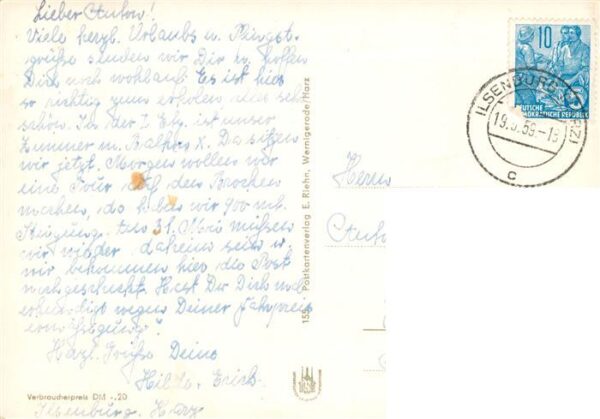 Lieber Anton!
Viele herzl. Urlaubs u. Pfingst-
grüße senden wir Dir u. hoffen
Dich noch wohlauf. Es ist hier
so richtig zum erholen, alles sehr
schön. In der I. Etg. ist unser
Zimmer m. Balkon x. Da sitzen
wir jetzt. Morgen wollen wir
eine Tour auf den Brocken
machen, da haben wir 900 mtr
Steigung. Am 31. Mai müssen
wir wieder daheim sein u.
wir bekommen hier die Post
nachgeschickt. Hast Du Dich mal
erkundigt wegen Deiner Fahrpreis
ermäßigung?
Herzl. Grüße Deine
Hilde, Erich.
Ilsenburg, Harz
Verbraucherpreis DM -,20
155 Postkartenverlag E. Riehn, Wernigerode/Harz
Herrn
Anton
10
DEUTSCHE
DEMOKRATISCHE REPUBLIK
ILSENBURG (HARZ)
19.5.59.-18
c